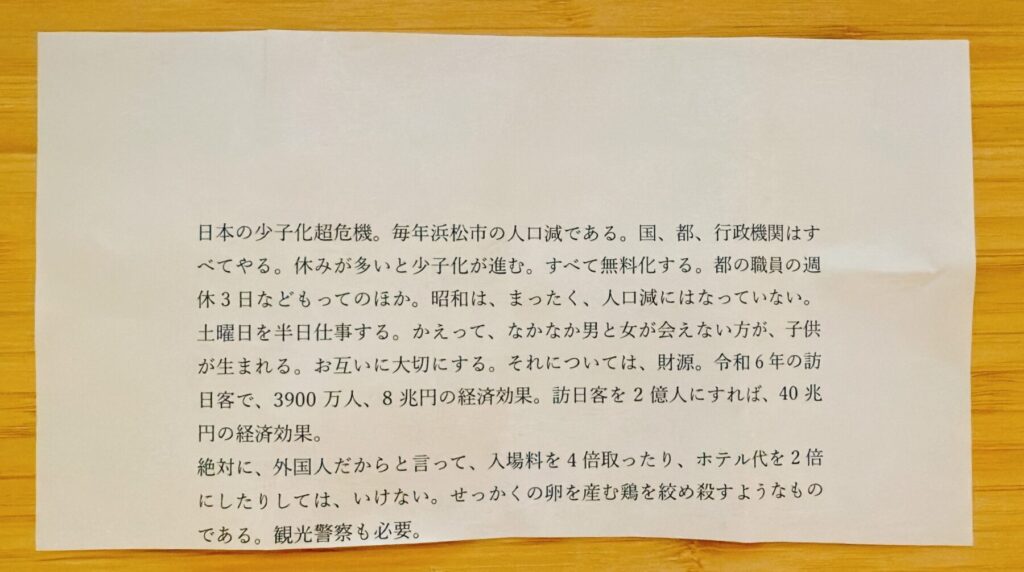 日本の少子化超危機。毎年浜松市の人口減である。国、都、行政機関はす
べてやる。休みが多いと少子化が進む。すべて無料化する。都の職員の週
休3日などもってのほか。昭和は、まったく、人口減にはなっていない。
土曜日を半日仕事する。かえって、なかなか男と女が会えない方が、子供
が生まれる。お互いに大切にする。それについては、財源。令和6年の訪
日客で、3900 万人、8 兆円の経済効果。訪日客を 2 億人にすれば、40 兆
円の経済効果。
絶対に、外国人だからと言って、入場料を 4 倍取ったり、ホテル代を 2 倍
にしたりしては、いけない。せっかくの卵を産む鶏を絞め殺すようなもの
である。観光警察も必要。